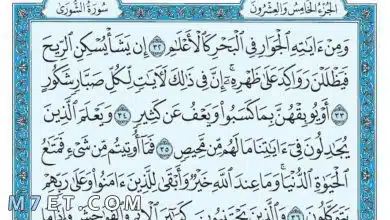 الجزء الخامس والعشرون سورة الشورى
وَمِنْ ءَايَٰتِهِ ٱلْجَوَارِ فِى ٱلْبَحْرِ كَٱلْأَعْلَٰمِ ٣٢ إِن يَشَأْ يُسْكِنِ ٱلرِّيحَ
فَيَظْلَلْنَ رَوَاكِدَ عَلَىٰ ظَهْرِهِۦٓ إِنَّ فِى ذَٰلِكَ لَءَايَٰتٍ لِّكُلِّ صَبَّارٍ شَكُورٍ
٣٣ أَوْ يُوبِقْهُنَّ بِمَا كَسَبُوا۟ وَيَعْفُ عَن كَثِيرٍ ٣٤ وَيَعْلَمَ ٱلَّذِينَ
يُجَٰدِلُونَ فِىٓ ءَايَٰتِنَا مَا لَهُم مِّن مَّحِيصٍ ٣٥ فَمَآ أُوتِيتُم مِّن شَىْءٍ فَمَتَٰعُ
ٱلْحَيَوٰةِ ٱلدُّنْيَا وَمَا عِندَ ٱللَّهِ خَيْرٌ وَأَبْقَىٰ لِلَّذِينَ ءَامَنُوا۟ وَعَلَىٰ رَبِّهِمْ
يَتَوَكَّلُونَ ٣٦ وَٱلَّذِينَ يَجْتَنِبُونَ كَبَٰٓئِرَ ٱلْإِثْمِ وَٱلْفَوَٰحِشَ وَإِذَا مَا
M7ET.COM